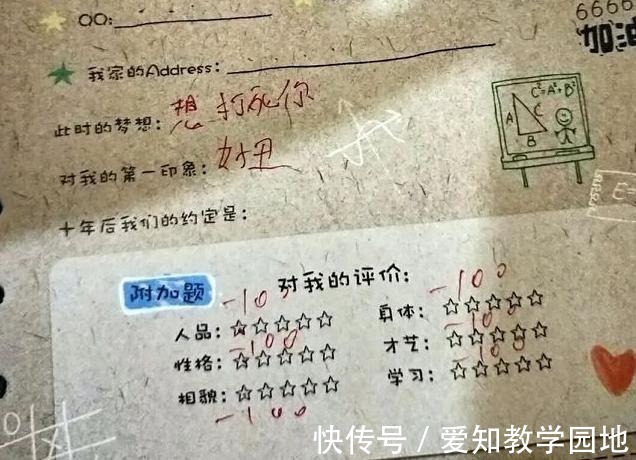 QQ:
6666
加油
我家的Address:
此时的梦想: 想打死你
C²=A²+B²
A
C
B
对我的第一印象: 好丑
十年后我们的约定是:
附加题
对我的评价:
人品: -10 ☆☆☆☆☆
身体: -100 ☆☆☆☆☆
性格: -100 ☆☆☆☆☆
才艺: -100 ☆☆☆☆☆
相貌: ☆☆☆☆☆ -100
学习: -100 ☆☆☆☆☆
快传号 / 爱知教学园地